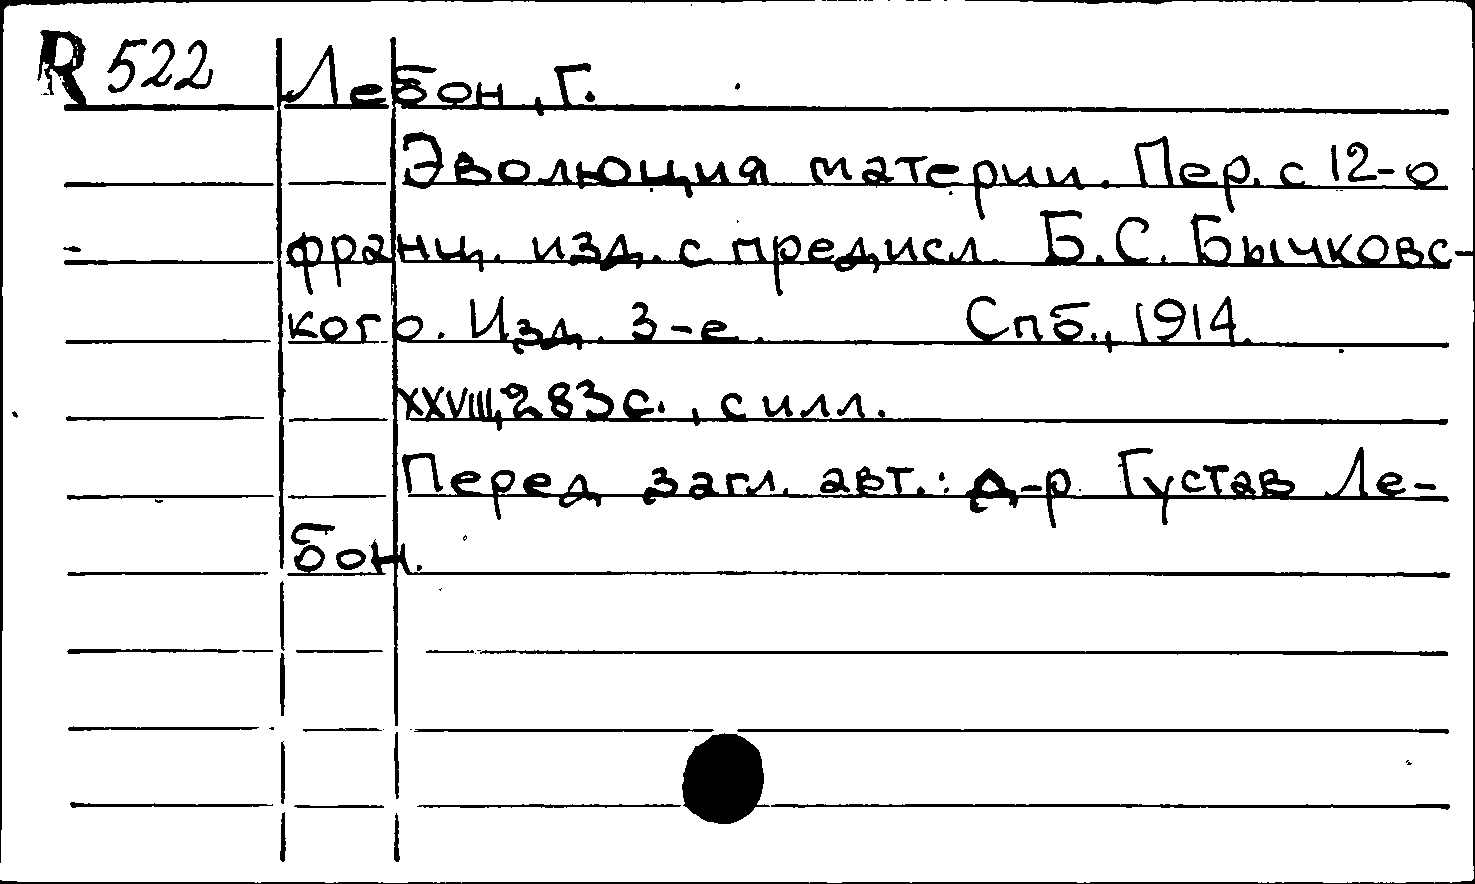 R 522 Лебон, Г.
Эволюция материи. Пер. с 12-о
франц. изд. с предисл. Б.С. Бычковс-
кого. Изд. 3-е. Спб., 1914.
XXVIII, 283 с., с илл.
Перед загл. авт.: д-р Густав Ле-
бон.